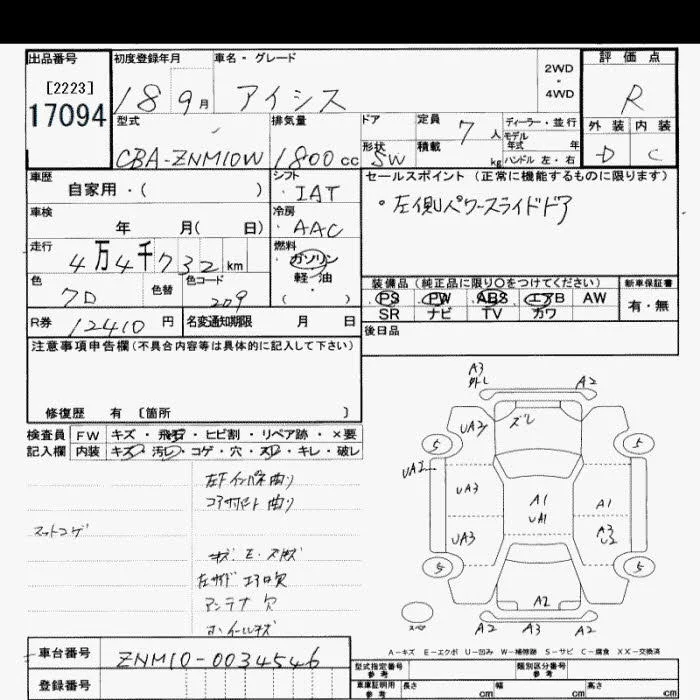 出品番号 初度登録年月 車名・グレード 評価点
[2223] 2WD・4WD
17094 18 9月 アイシス R
型式 排気量 ドア 定員 7人 ディーラー・並行 外装 内装
形状 積載 モデル年式 年
CBA-ZNM10W 1800cc SW kg ハンドル 左・右 D C
車歴 シフト セールスポイント(正常に機能するものに限ります)
自家用・( ) IAT
車検 冷房 ・左側パワースライドドア
年 月( 日) AAC
走行 燃料
4万4千732km ガソリン
軽・油
色 色替 色コード ( ) 装備品(純正品に限り○をつけてください) 新車保証書
クロ 209 PS PW ABS エアB AW 有・無
SR ナビ TV カワ
R券 12410円 名変通知期限 月 日 後日品
注意事項申告欄(不具合内容等は具体的に記入して下さい)
修復歴 有 〔箇所 〕
検査員 FW キズ・飛石・ヒビ割・リペア跡・×要
記入欄 内装 キズ・汚レ・コゲ・穴・スレ・キレ・破レ
A3 A2
UA3 ズレ
5 5
UA2
UA3 A1 A1
UA1
UA3 A3
U2
5 5
A2
スペア A2 A3 A2
左F インパネ曲り
コアサポート曲り
左サイド エアB欠
アンテナ欠
ホイールキズ
A-キズ E-エクボ U-凹み W-補修跡 S-サビ C-腐食 XX-交換済
車台番号 ZNM10-0034546 型式指定番号 参考 類別区分番号 参考
登録番号 車庫証明用 参考 長さ cm 幅 cm 高さ cm